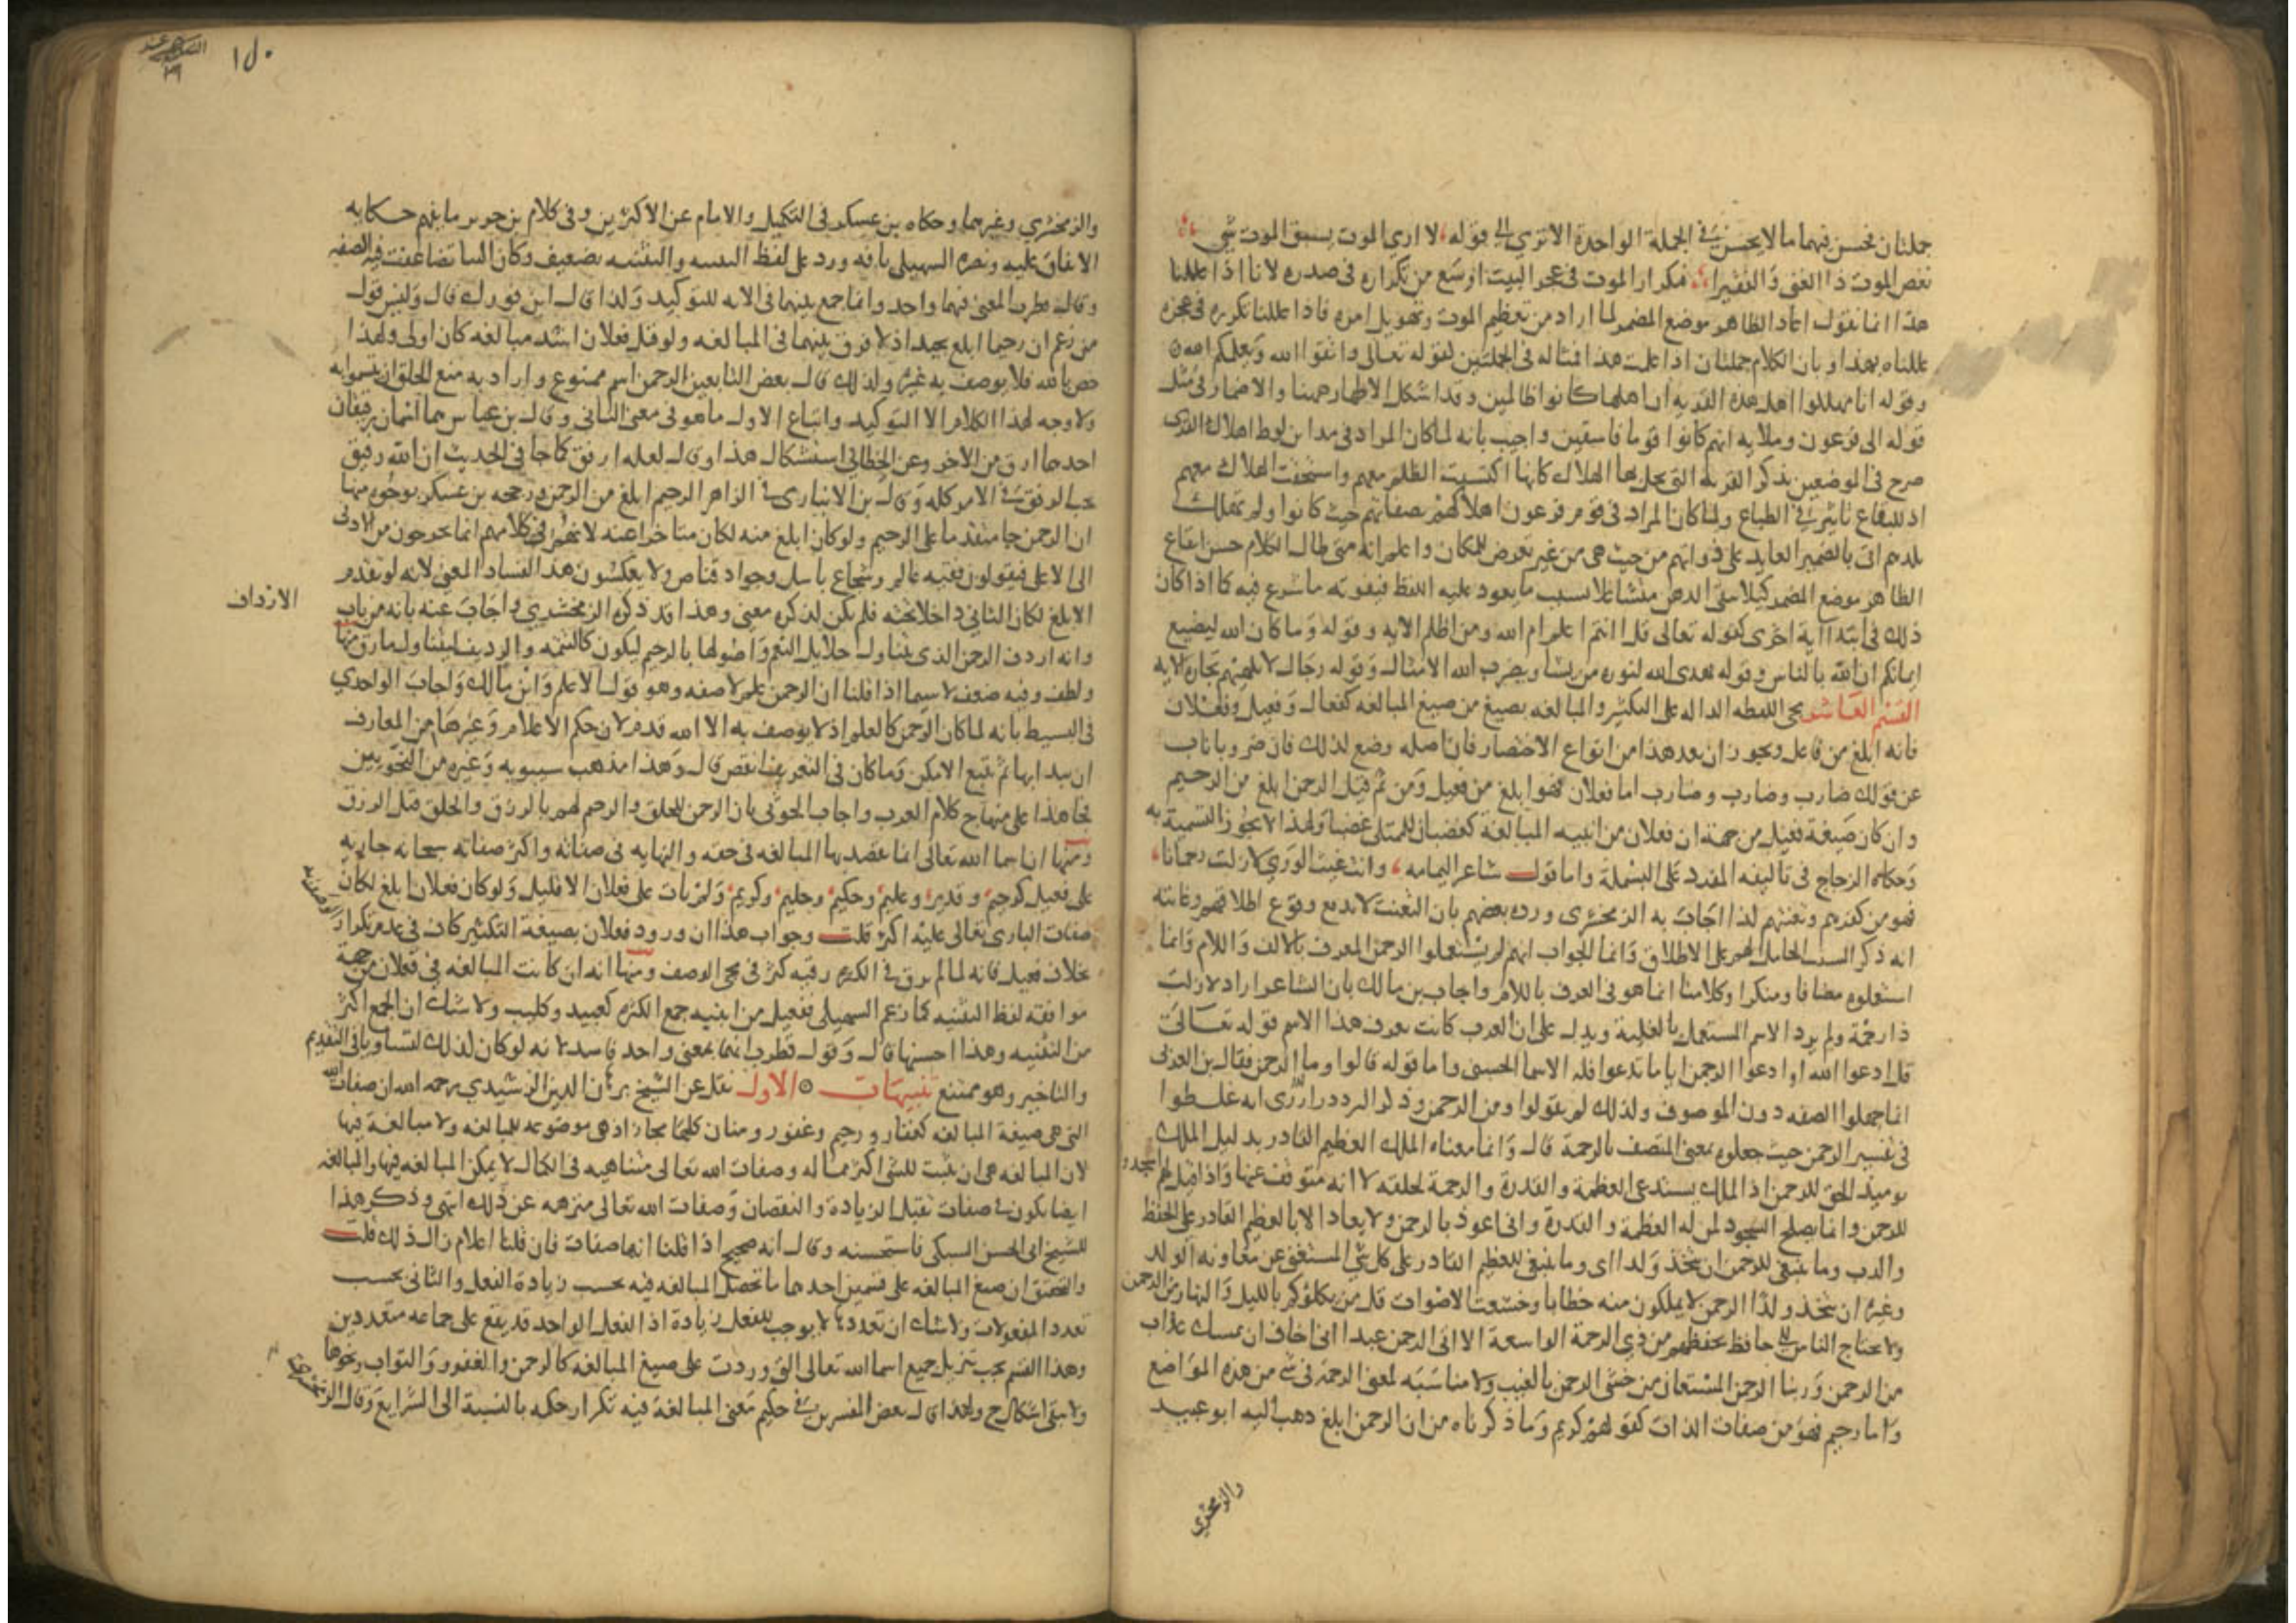 جملتان فحسن فيهما ما لا يحسن في الجملة الواحدة الا تري الي قوله، لا اري الموت يسبق الموت شي
نغص الموت ذا الغني والفقيرا، فتكرار الموت في عجز البيت اوسع من تكراره في صدره لانا اذا عللنا
هذا انما نقول اعاد الظاهر موضع المضمر لما اراد من تعظيم الموت وتهويل امره فاذا عللنا تكريره في عجزه
عللناه بهذا وبان الكلام جملتان اذا علمت هذا فمثاله في الجملتين لقوله تعالى واتقوا الله ويعلمكم الله
وقوله انا مهلكوا اهل هذه القرية ان اهلها كانوا ظالمين وقد اشكل الاظهار ههنا والاضمار في مثل
قوله الى فرعون وملايه انهم كانوا قوما فاسقين واجيب بانه لما كان المراد في مداين لوط اهلاك القرى
صرح في الموضعين بذكر القرية التي يحل بها الهلاك كانها اكتسبت الظلم معهم واستحقت الهلاك معهم
اذ للبقاع تاثير في الطباع ولما كان المراد في قوم فرعون اهلاكهم بصفاتهم حيث كانوا ولم تهلك
بلدهم اتى بالضمير العايد على ذواتهم من حيث هي من غير تعرض للمكان واعلم انه متى طال الكلام حسن ايقاع
الظاهر موضع المضمر كيلا يبقى الذهن متشاغلا بسبب ما يعود عليه اللفظ فيفوته ما شرع فيه كما اذا كان
ذلك في ابتدا اية اخرى كقوله تعالى قل اانتم اعلم ام الله ومن اظلم الايه وقوله وما كان الله ليضيع
ايمانكم ان الله بالناس وقوله يهدى الله لنوره من يشا ويضرب الله الامثال وقوله رجال لا تلهيهم تجارة الايه
القسم العاشر مجي اللفظه الداله على التكثير والمبالغه بصيغ من صيغ المبالغه كفعال وفعيل وفعلان
فانه ابلغ من فاعل ويجوز ان يعد هذا من انواع الاختصار فان اصله وضع لذلك فان ضروبا ناب
عن قولك ضارب وضارب وضارب اما فعلان فهو ابلغ من فعيل ومن ثم قيل الرحمن ابلغ من الرحيم
وان كان صيغة فعيل من جهة ان فعلان من ابنيه المبالغة كغضبان للممتلى غضبا ولهذا لا يجوز التسمية به
وحكاه الزجاج في تاليفه المفرد على البسملة واما قول شاعر اليمامه، وانت غيث الوري لا زلت رحمانا،
فهو من كفرهم وتعنتهم لذا اجاب به الزمخشرى ورده بعضهم بان التعنت لا يدفع وقوع اطلاقهم وغايته
انه ذكر السبب الحامل لهم على الاطلاق وانما الجواب انهم لم يستعملوا الرحمن المعرف بالالف واللام وانما
استعلوه مضافا ومنكرا وكلامنا انما هو فى المعرف باللام واجاب بن مالك بان الشاعر اراد لا زلت
ذا رحمة ولم يرد الاسم المستعمل بالغلبة ويدل على ان العرب كانت تعرف هذا الاسم قوله تعالى
قل ادعوا الله او ادعوا الرحمن ايا ما تدعوا فله الاسما الحسنى واما قوله قالوا وما الرحمن فقال بن العربي
انما جهلوا الصفه دون الموصوف ولذلك لم يقولوا ومن الرحمن وذكر البرزي انه غلطوا
في تفسير الرحمن حيث جعلوه بمعنى المتصف بالرحمة قال وانما معناه الملك العظيم القادر بدليل الملك
يوميذ الحق للرحمن اذ الملك يستدعى العظمة والقدرة والرحمة لخلقه لا انه متوقف عنها واذا قيل لهم اسجدوا
للرحمن وانما يصلح السجود لمن له العظمة والقدرة واني اعوذ بالرحمن ولا يعاذ الا بالعظيم القادر على الحفظ
والذب وما ينبغي للرحمن ان يتخذ ولدا اى وما ينبغي للعظيم القادر على كل شي المستغني عن معاونه الولد
وغيره ان يتخذ ولدا الرحمن لا يملكون منه خطابا وخشعت الاصوات قل من يكلؤكم بالليل والنهار من الرحمن
ولا يحتاج الناس الى حافظ يحفظهم من ذي الرحمة الواسعة الا اتى الرحمن عبدا اني اخاف ان يمسك عذاب
من الرحمن وربنا الرحمن المستعان من خشي الرحمن بالغيب ولا مناسبه لمعنى الرحمة فى شى من هذه المواضع
واما رحيم فهو من صفات الذات كقولهم كريم وما ذكرناه من ان الرحمن ابلغ ذهب اليه ابو عبيد
والزمخشري
١٥٠
والزمخشري وغيرهما وحكاه بن عسكر فى التكميل والامام عن الاكثرين وفى كلام بن جرير ما يفهم حكايه
الاتفاق عليه ونصره السهيلي بانه ورد على لفظ التثنيه والتثنيه تضعيف وكان البنا تضاعفت فيه الصفه
وقال قطرب المعنى فيهما واحد وانما جمع بينهما فى الايه للتوكيد ولذا قال ابن فورك قال وليس قول
من زعم ان رحيما ابلغ بجيد اذ لا فرق بينهما في المبالغه ولو قيل فعلان اشد مبالغه كان اولى ولهذا
خص بالله فلا يوصف به غيره ولذلك قال بعض التابعين الرحمن اسم ممنوع واراد به منع الخلق ان يتسموا به
ولا وجه لهذا الكلام الا التوكيد واتباع الاول ما هو فى معنى الثاني وقال بن عباس هما اسمان رقيقان
احدهما ارق من الاخر وعن الخطابي استشكال هذا وقال لعله ارفق كما جا في الحديث ان الله رفيق
يحب الرفق في الامر كله وقال بن الانباري في الزاهر الرحيم ابلغ من الرحمن ورجحه بن عسكر بوجوه منها
ان الرحمن جا متقدما على الرحيم ولو كان ابلغ منه لكان متاخرا عنه لانهم في كلامهم انما يخرجون من الادنى
الى الاعلى فيقولون فقيه عالم وشجاع باسل وجواد فياض ولا يعكسون هذا لفساد المعنى لانه لو تقدم
الابلغ لكان الثاني داخلا تحته فلم يكن لذكره معنى وهذا قد ذكره الزمخشري واجاب عنه بانه من باب
الارداف
وانه اردف الرحمن الذي يتناول جلايل النعم واصولها بالرحيم ليكون كالتتمه والرديف ليتناول ما رق منها
ولطف وفيه ضعف لا سيما اذا قلنا ان الرحمن علم لا صفه وهو قول الاعلم وابن مالك واجاب الواحدي
في البسيط بانه لما كان الرحمن كالعلم اذ لا يوصف به الا الله قدم لان حكم الاعلام وغيرها من المعارف
ان يبدا بها ثم يتبع الانكر وما كان في التعريف انقص قال وهذا مذهب سيبويه وغيره من النحويين
فجا هذا على منهاج كلام العرب واجاب الجويني بان الرحمن للخلق والرحيم لهم بالرزق والخلق قبل الرزق
ومنها ان اسما الله تعالى انما يقصد بها المبالغه في حقه والنهايه فى صفاته واكثر صفاته سبحانه جاريه
على فعيل كرحيم، وقدير، وعليم، وحكيم، وحليم، وكريم، ولم يات على فعلان الا قليل ولو كان فعلان ابلغ لكان
صفات البارى تعالى عليه اكثر قلت وجواب هذا ان ورود فعلان بصيغة التكثير كاف في عدم تكرار الوصف به
بخلاف فعيل فانه لما لم يرق في الكثره رقيه كثر في مجي الوصف ومنها انه ان كانت المبالغه في فعلان من جهة
موافقه لفظ التثنيه كما زعم السهيلي ففعيل من ابنيه جمع الكثره كعبيد وكليب ولا شك ان الجمع اكثر
من التثنيه وهذا احسنها قال وقول قطرب انهما بمعنى واحد فاسد لانه لو كان لذلك لتساويا في التقديم
والتاخير وهو ممتنع تنبيهات ۞ الاول نقل عن الشيخ برهان الدين الرشيدي رحمه الله ان صفات الله
التي هى صيغة المبالغه كغفار ورحيم وغفور ومنان كلها مجاز اذ هي موضوعه للمبالغه ولا مبالغة فيها
لان المبالغه هى ان يثبت للشى اكثر مما له وصفات الله تعالى متناهيه في الكمال لا يمكن المبالغه فيها والمبالغه
ايضا تكون في صفات تقبل الزيادة والنقصان وصفات الله تعالى منزهه عن ذلك انتهى وذكر هذا
للشيخ ابى الحسن السبكي فاستحسنه وقال انه صحيح اذا قلنا انها صفات فان قلنا اعلام زال ذلك قلت
والتحقق ان صيغ المبالغه على قسمين احدهما ما تحصل المبالغه فيه بحسب زيادة الفعل والثاني بحسب
تعدد المفعولات ولا شك ان تعددها لا يوجب للفعل زيادة اذ الفعل الواحد قد يقع على جماعه متعددين
وهذا القسم يجب تنزيل جميع اسما الله تعالى التي وردت على صيغ المبالغه كالرحمن والغفور والتواب ونحوها
ولا يبقى اشكال ح ولهذا قال بعض المفسرين في حكيم معنى المبالغة فيه تكرار حكمه بالنسبة الى الشرايع وقال الزمخشري